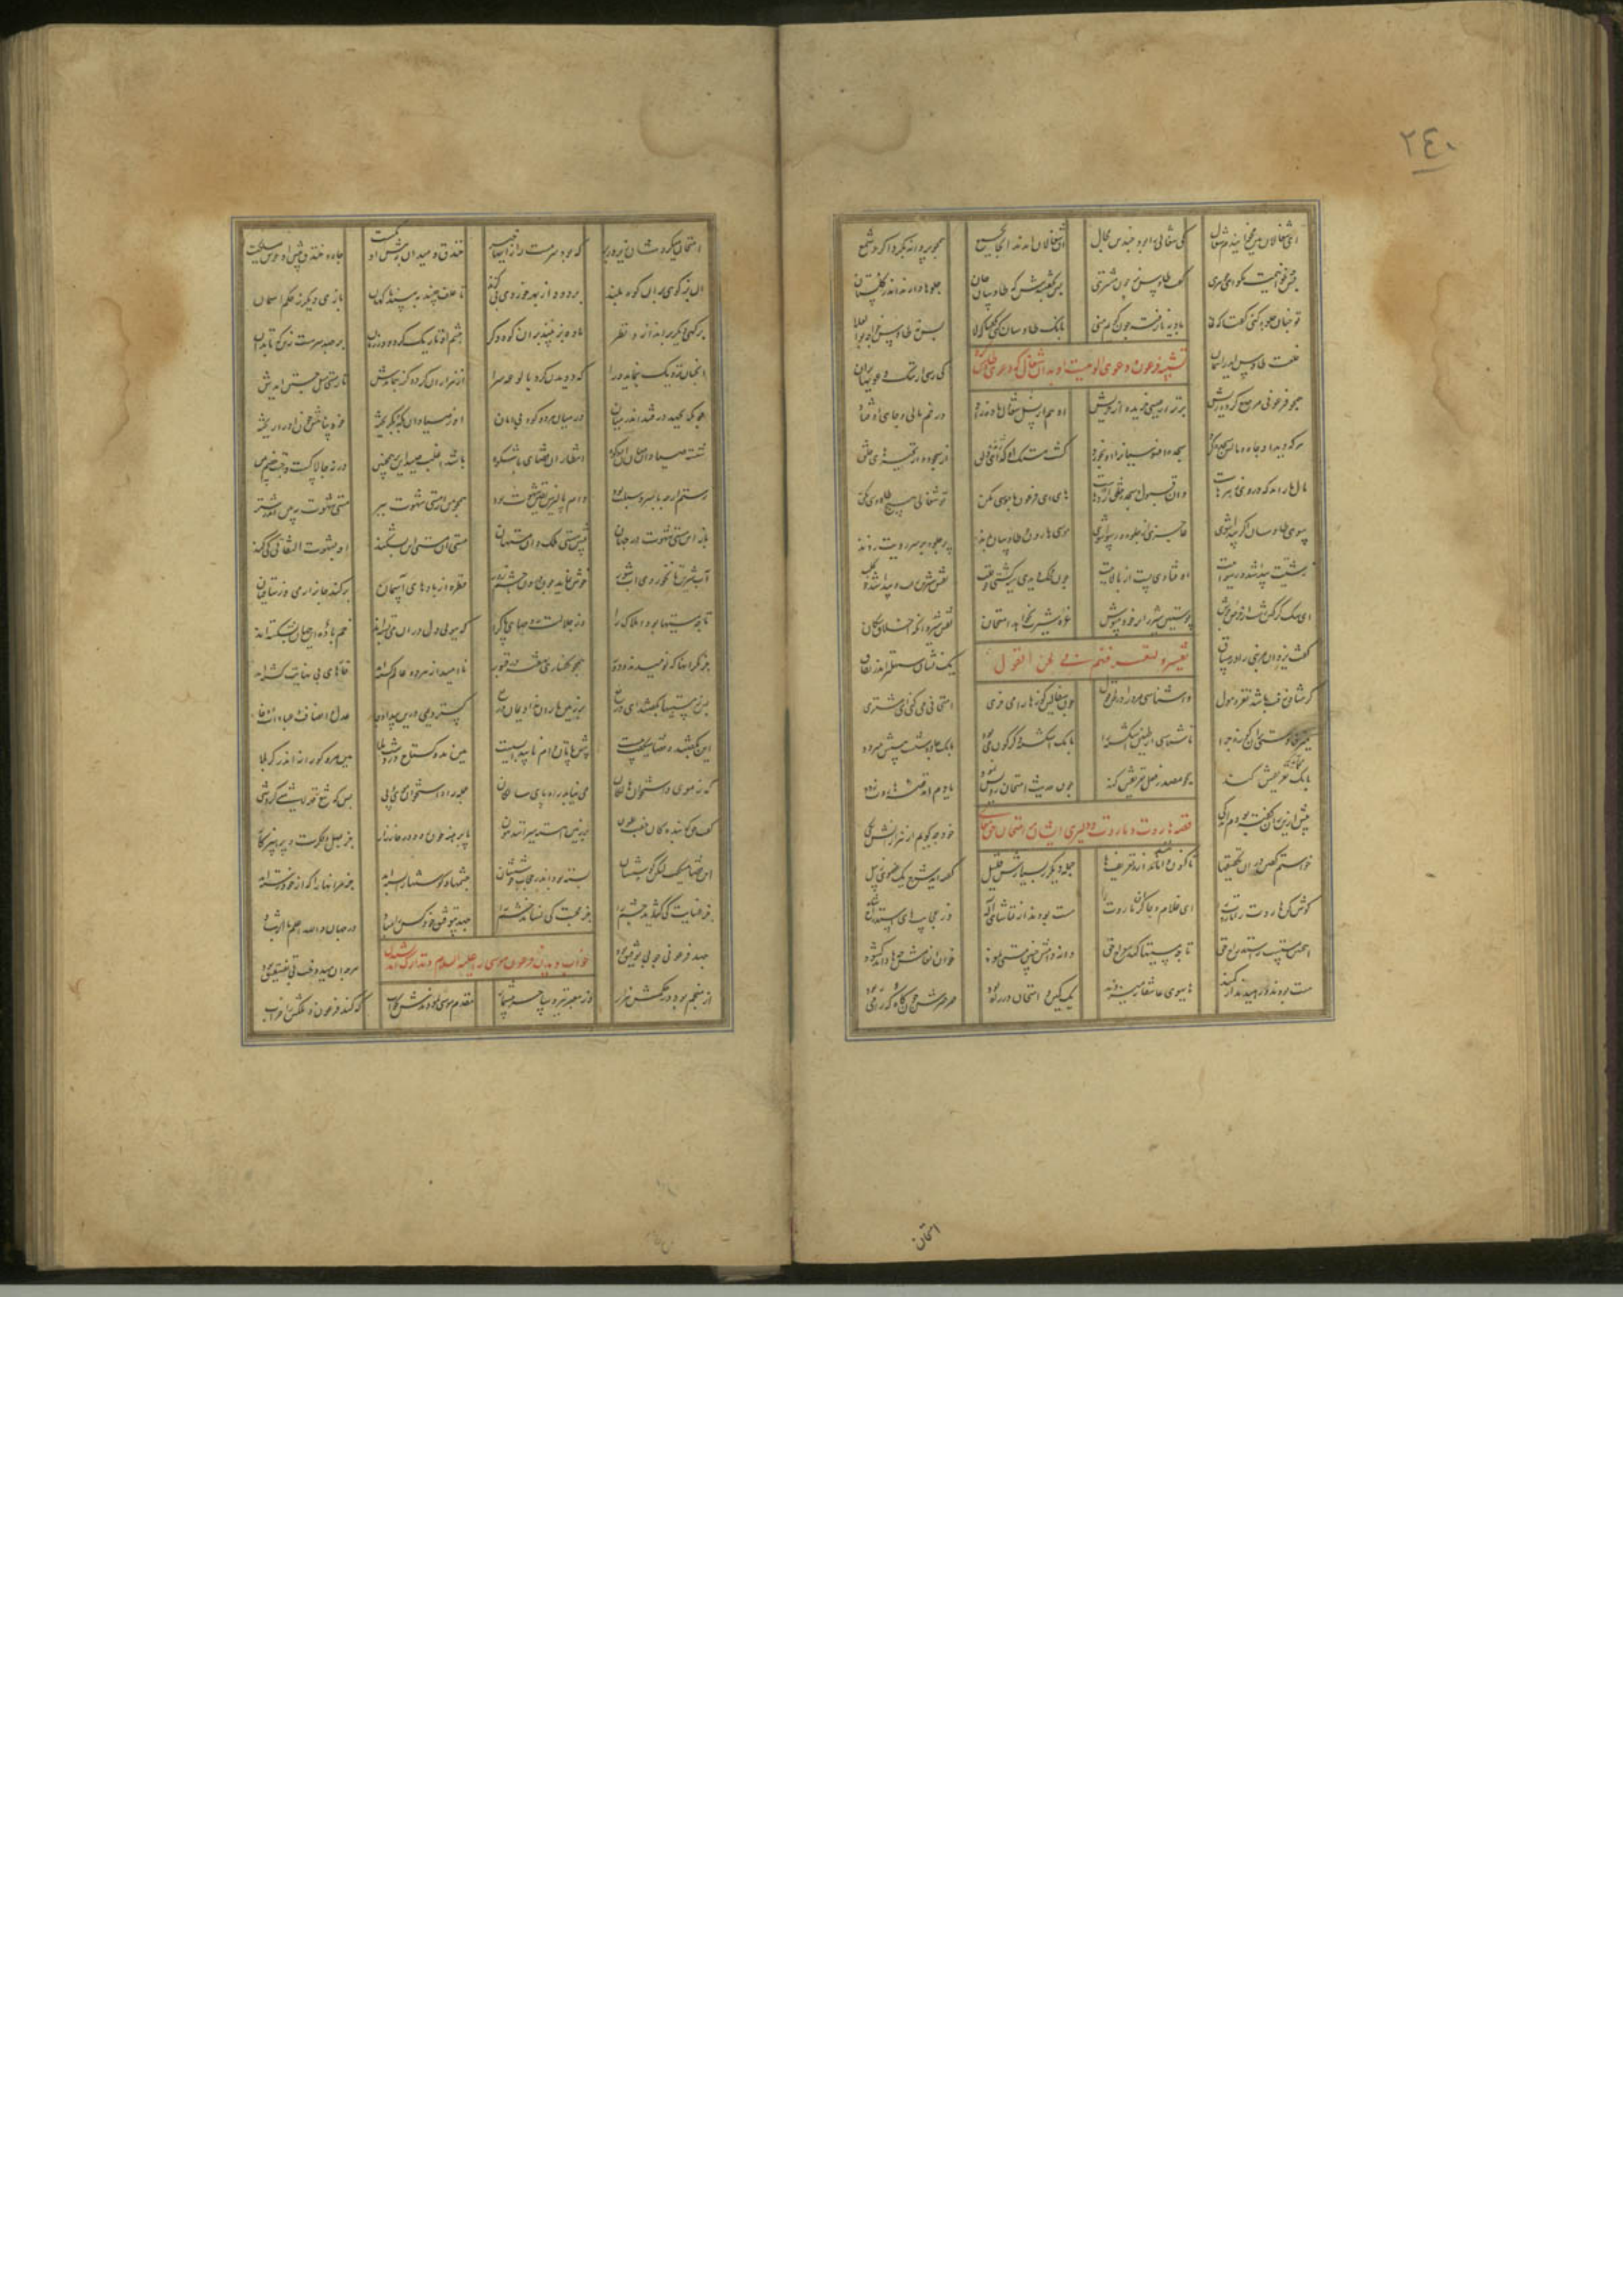 ٢٤٠
ای شغالان هین مخوانیدم شغال کی شغالی را بود چندین جمال آن شغالان آمدند آنجا بجمع همچو پروانه بگرداگرد شمع
پس چه خوانیمت بگو ای جوهری گفت طاوس نر چون مشتری پس بگفتندش که طاوسان جان جلوها دارند اندر گلستان
تو چنان جلوه کنی گفتا که نی بادیه نارفته چون گویم منی بانگ طاوسان کنی گفتا که لا پس نه طاوس خواجه بوالعلا
خلعت طاوس آید ز آسمان کی رسی از رنگ و دعویها بدان
تشبیه فرعون و دعوی الوهیت او بدان شغال که دعوی طاوسی کرد
همچو فرعونی مرصع کرده ریش برتر از عیسی پریده از خریش او هم از نسل شغال ماده زاد در خم مالی و جاهی اوفتاد
هر که دید آن جاه و مالش سجده کرد سجده افسوسیان را او بخورد گشت مستک از سجود و از تحیرهای خلق
مال مار آمد که در وی زهرهاست وان قبول سجده خلق اژدهاست های ای فرعون ناموسی مکن تو شغالی هیچ طاوسی مکن
سوی طاوسان اگر پیدا شوی عاجزی از جلوه و رسوا شوی موسی و هارون چو طاوسان بدند پر جلوه بر سر و رویت زدند
زشتیت پیدا شد و رسواییت اوفتادی پست از بالاییت چون محک دیدی سیه گشتی چو قلب نقش شیری رفت و پیدا شد کلب
ای سگ گرگین زشت از حرص و جوش پوستین شیر را بر خود مپوش غره شیرت بخواهد امتحان نقش شیر و آنگه اخلاق سگان
گفت یزدان مر نبی را در مساق یک نشانی سهلتر ز اهل نفاق
تفسیر و لتعرفنهم فی لحن القول
گر منافق زفت باشد نغز و هول وا شناسی مر ورا در لحن و قول چون سفالین کوزها را می خری امتحانی می کنی ای مشتری
می زنی دستی بران کوزه چرا تا شناسی از طنین اشکسته را بانگ اشکسته دگرگون می بود بانگ چاوشست پیشش میرود
بانگ تعریفش کند همچو مصدر فعل تصریفش کند چون حدیث امتحان رویی نمود یادم آمد قصه هاروت زود
پیش ازین زان گفته بودیم اندکی خود چه گویم از هزارانش یکی
قصه هاروت و ماروت و دلیری ایشان بر امتحان حق تعالی
خواستم گفتن در آن تحقیقها تا کنون وامانده از تعویقها حمله دیگر ز بسیارش قلیل گفته آید شرح یک عضوی ز پیل
گوش کن هاروت را ماروت را ای غلام و چاکران ما روت را مست بودند از تماشای اله وز عجایب های استدراج شاه
این چنین مستیست ز استدراج حق تا چه مستیها کند معراج حق دانه دامش چنین مستی نمود خوان انعامش چها داند گشود
مست بودند و رهیده از کمند های هوی عاشقانه میزدند یک کمین و امتحان در راه بود صرصرش چون کاه که را می ربود
امتحان
امتحان میکردشان زیر و زبر کی بود سرمست را زینها خبر خندق و میدان به پیش او یکیست چاه و خندق پیش او خوش مسلکیست
آن بز کوهی بران کوه بلند بر دود از بهر خوردی بی گزند تا علف چیند ببیند ناگهان بازی دیگر ز حکم آسمان
بر کهی دیگر بر اندازد نظر ماده بز بیند بران کوه دگر چشم او تاریک گردد در زمان بر جهد سرمست زین که تا بدان
آنچنان نزدیک بنماید ورا که دویدن گرد بالوعه سرا آن هزاران گز دو گز بنمایدش تا ز مستی میل جستن آیدش
چونکه بجهد در فتد اندر میان در میان هر دو کوه بی امان او ز صیادان بکه بگریخته خود پناهش خون او را ریخته
شسته صیادان میان آن دو کوه انتظار این قضای باشکوه باشد اغلب صید این بز همچنین ورنه چالاکست و چست و خصم بین
رستم ارچه با سر و سبلت بود دام پاگیرش یقین شهوت بود همچو من از مستی شهوت ببر مستی شهوت ببین اندر شتر
باز این مستی شهوت در جهان پیش مستی ملک دان مستهان مستی آن مستی این بشکند او بشهوت التفاتی کی کند
آب شیرین تا نخوردی آب شور خوش نماید چون قطره از بادهای آسمان برکند جانرا ز می وز ساقیان
تا چه مستیها بود املاک را وز جلالت روحهای پاک را که ببویی دل دران می بسته اند خم باده این جهان بشکسته اند
جز مگر آنها که نومیدند و دور همچو کفاری نهفته در قبور ناامید از هر دو عالم گشته اند خارهای بی نهایت کشته اند
پس ز مستیها بگفتند ای دریغ بر زمین باران بدادیمی چو میغ گستردیمی درین بیداد جا عدل و انصاف و عبادات و وفا
این بگفتند و قضا میگفت بیست پیش پاتان دام ناپیدا بسیست هین مدو گستاخ در دشت بلا هین مرو کورانه اندر کربلا
که ز موی و استخوان هالکان می نیابد راه پای سالکان جمله راه استخوان و موی و پی بس که تیغ قهر لاشی کرد شی
گفت حق که بندگان جفت عون بر زمین آهسته میرانند و هون پا برهنه چون رود در خارزار جز بمهل و فکرت و پرهیزکار
این قضا میگفت لیکن گوششان بسته بود اندر حجاب جوششان چشمها و گوشها را بسته اند جز مر آنها را که از خود رسته اند
جز عنایت کی گشاید چشم را جز محبت کی نشاند خشم را جهد بی توفیق خود کس را مباد در جهان والله اعلم بالرشاد
جهد فرعونی چو بی توفیق بود هرچه او میدوخت آن تفتیق بود
خواب دیدن فرعون موسی را علیه السلام و تدارک اندیشیدن
از منجم بود در حکمش هزار وز معبر نیز و ساحر بیشمار مقدم موسی نمودندش بخواب که کند فرعون و ملکش را خراب